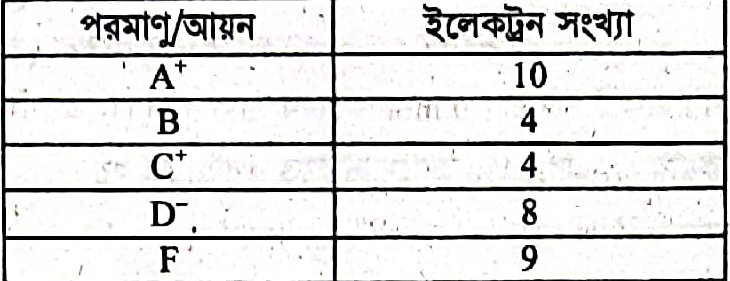 পরমাণু/আয়ন ইলেকট্রন সংখ্যা
A⁺ 10
B 4
C⁺ 4
D⁻ 8
F 9